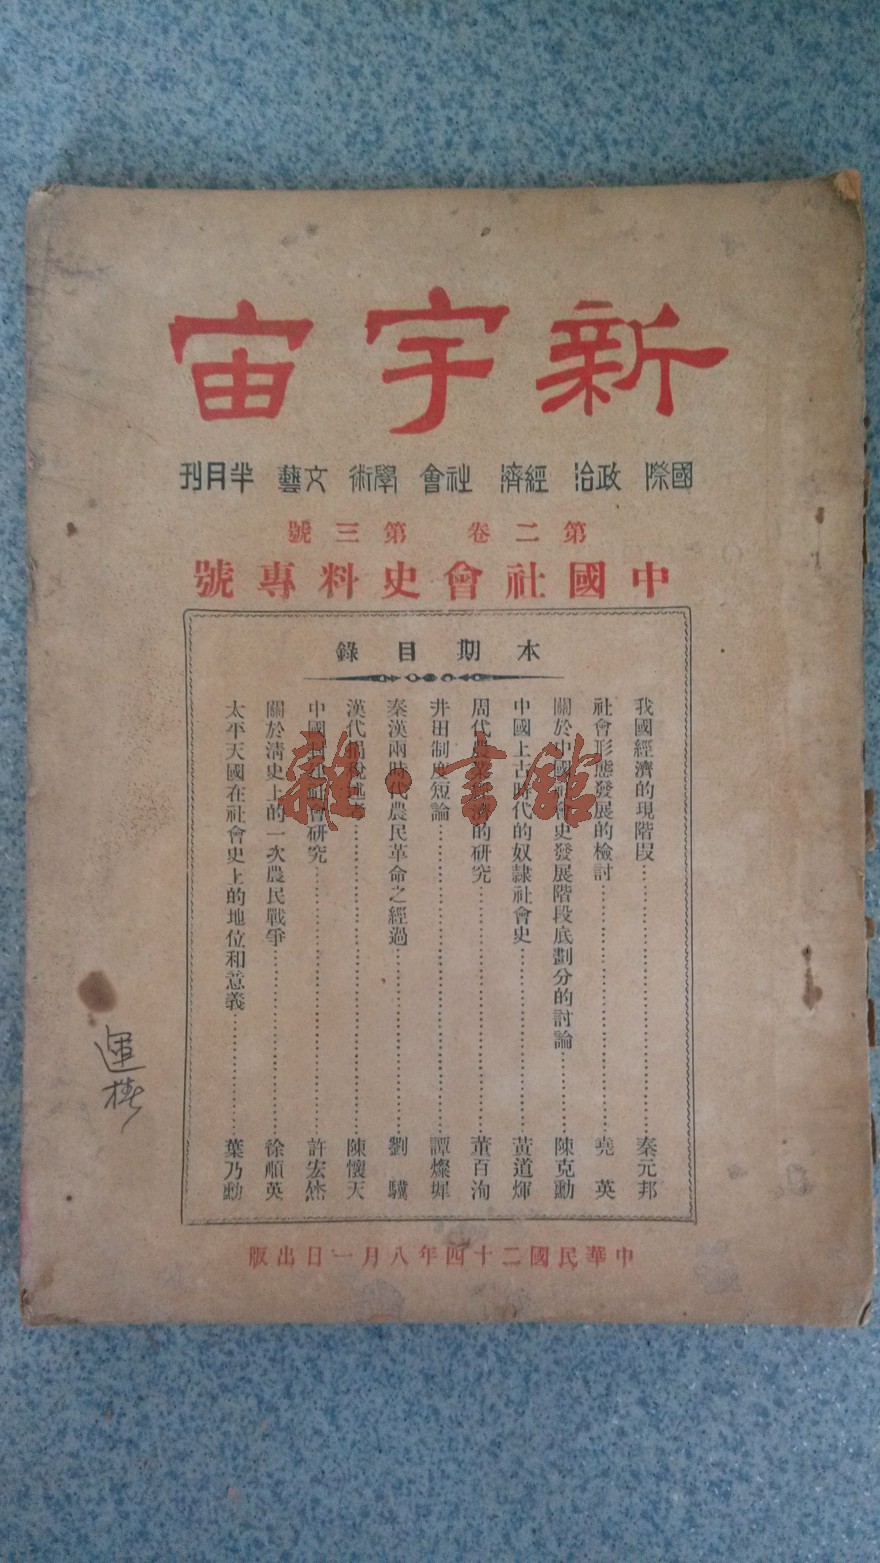 新宇宙
國際 政治 經濟 社會 學術 文藝 半月刊
第二卷 第三號
中國社會史料專號
本期目錄
我國經濟的現階段…秦元邦
社會形態發展的檢討…堯 英
關於中國社會史發展階段底劃分的討論…陳克勳
中國上古時代的奴隸社會史…黃道煇
周代農業經濟的研究…董百洵
井田制度短論…譚燦墀
秦漢兩時代農民革命之經過…劉 驥
漢代捐稅述…陳懷天
中國封建社會研究…許宏烋
關於清史上的一次農民戰爭…徐順英
太平天國在社會史上的地位和意義…葉乃勳
中華民國二十四年八月一日出版
雜·書館